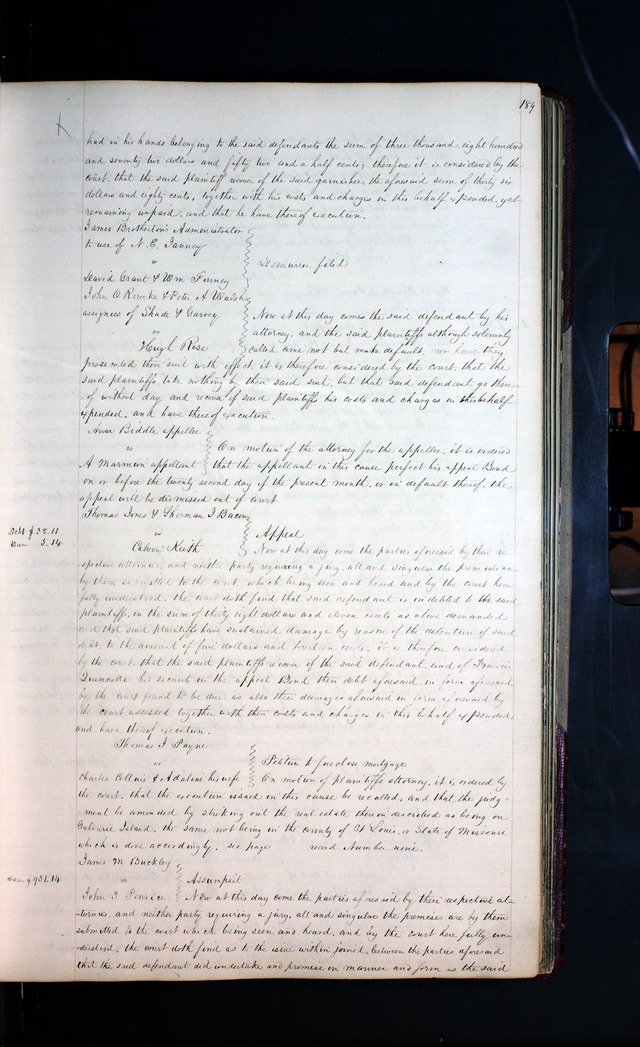 189
had in his hands belonging to the said defendants the sum of three thousand eight hundred
and seventy two dollars and fifty two and a half cents; therefore it is considered by the
court, that the said plaintiff recover of the said garnishee, the aforesaid sum of thirty six
dollars and eighty cents, together with his costs and charges in this behalf expended, yet
remaining unpaid, and that he have thereof execution.
James Brotherton's Administrator
to use of N. E. Janney
vs
Demurrer filed
David Grant & Wm Finney
John O Rourke & Peter A Walsh
assignees of Shade & Garvey
vs
Hugh Rose
Now at this day comes the said defendant by his
attorney, and the said plaintiffs although solemnly
called came not but make default, nor have they
prosecuted their suit with effect, it is therefore considered by the court, that the
said plaintiffs take nothing by their said suit, but that said defendant go there-
of without day and recover of said plaintiffs his costs and charges in this behalf
expended, and have thereof execution.
Ann Biddle appellee
vs
A Marmion appellant
On motion of the attorney for the appellee, it is ordered
that the appellant in this cause perfect his appeal Bond
on or before the twenty second day of the present month, or in default thereof, the
appeal will be dismissed out of court
Thomas Jones & Sherman J Bacon
Debt $38.11
Dam 5.14
vs
Calvin Keith
Appeal
Now at this day come the parties aforesaid by their re-
spective attornies, and neither party requiring a jury, all and singular the premises are
by them submitted to the court, which being seen and heard and by the court here
fully understood, the court doth find that said defendant is indebted to the said
plaintiffs, in the sum of thirty eight dollars and eleven cents as above demanded
and that said plaintiffs have sustained damage by reason of the detention of said
debt, to the amount of five dollars and fourteen cents, it is therefore considered
by the court, that the said plaintiffs recover of the said defendant, and of Francis
his security in the appeal Bond their debt aforesaid, in form aforesaid
by the court found to be due, as also their damages aforesaid in form aforesaid by
the court assessed, together with their costs and charges in this behalf expended
and have thereof execution.
Thomas J Payne
vs
Charles Collins & Adaline his wife
Petition to foreclose mortgage
On motion of plaintiffs attorney, it is ordered by
the court, that the execution issued in this cause be recalled, and that the judg-
ment be amended by striking out the real estate therein described as being on
Island, the same not being in the county of St Louis, or State of Missouri
which is done accordingly. see page record Number nine.
James M Buckley
Dam $931.14
vs
John J
Assumpsit
Now at this day come the parties aforesaid by their respective at-
tornies, and neither party requiring a jury, all and singular the premises are by them
submitted to the court which being seen and heard, and by the court here fully un-
derstood, the court doth find as to the issue within joined, between the parties aforesaid
that the said defendant did undertake and promise in manner and form as the said